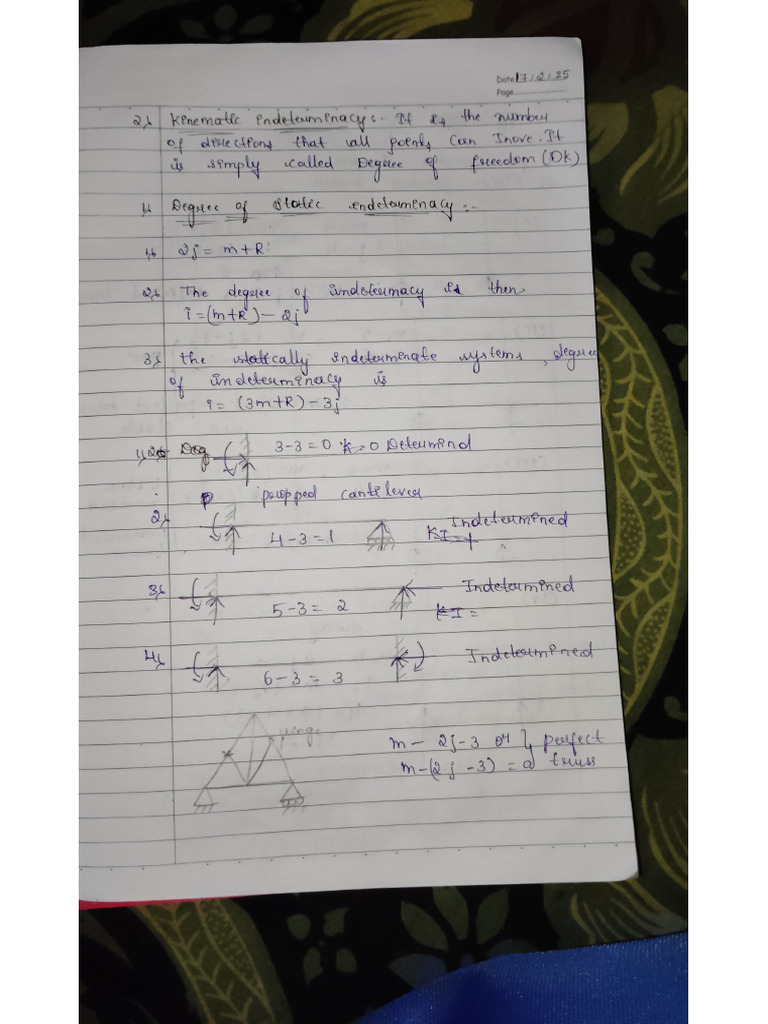 Date 17/2/25
Page
2) Kinematic indeterminacy:- It is the number
of directions that all points can move. It
is simply called Degree of freedom (Dk)
1) Degree of static indeterminacy:-
1) 2j = m+R
2) The degree of indeterminacy is then
i = (m+R) - 2j
3) the statically indeterminate systems, degree
of indeterminacy is
i = (3m+R) - 3j
Deg 3-3=0 K=0 Determind
propped cantilever
2) 4-3=1 Indetermined
KI=1
3) 5-3= 2 Indetermined
KI =
4) 6-3 = 3 Indetermined
m - 2j-3 or } perfect
m-(2j-3) = 0 truss